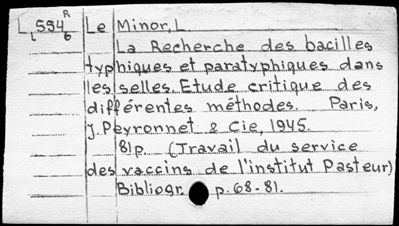 L594R Le Minor, L
L 6
La Recherche des bacilles
typhiques et paratyphiques dans
les selles. Etude critique des
différentes méthodes. Paris,
J. Peyronnet & Cie, 1945.
81p. (Travail du service
des vaccins de l'institut Pasteur)
Bibliogr. p. 68-81.